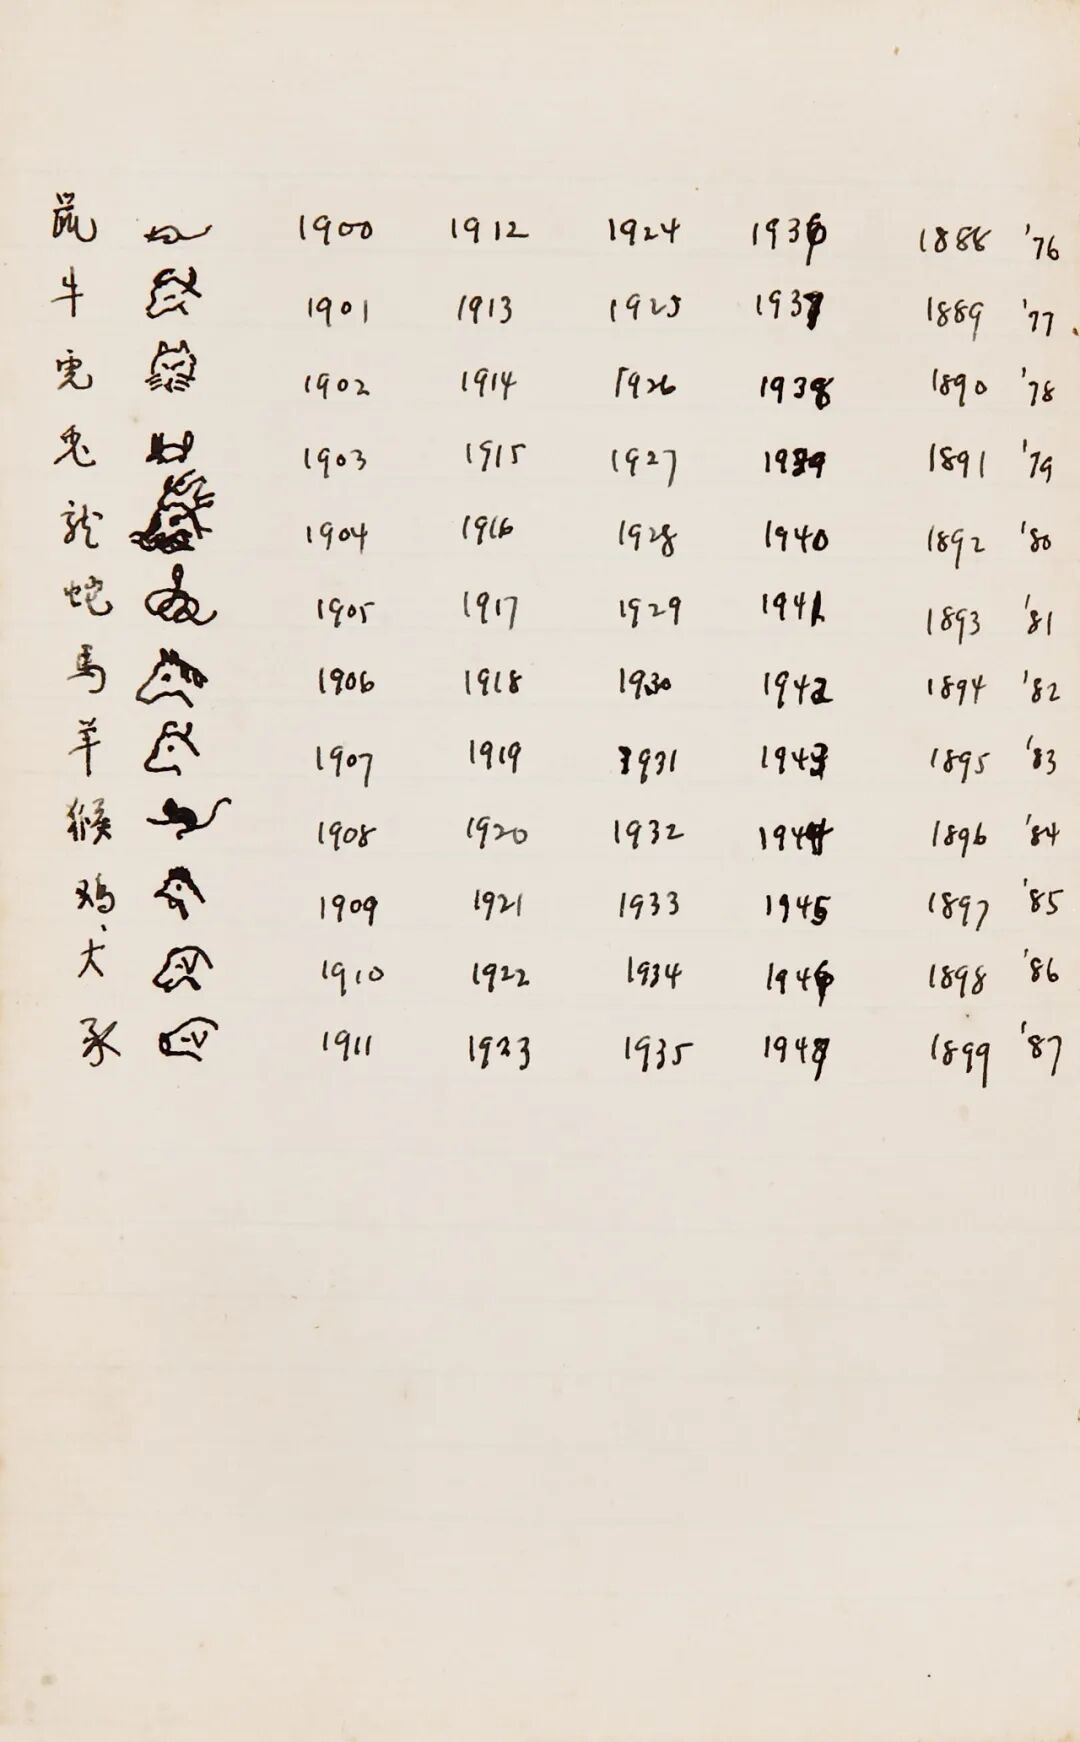 鼠 1900 1912 1924 1936 1888 '76
牛 1901 1913 1925 1937 1889 '77
虎 1902 1914 1926 1938 1890 '78
兎 1903 1915 1927 1939 1891 '79
龍 1904 1916 1928 1940 1892 '80
蛇 1905 1917 1929 1941 1893 '81
馬 1906 1918 1930 1942 1894 '82
羊 1907 1919 1931 1943 1895 '83
猴 1908 1920 1932 1944 1896 '84
鸡 1909 1921 1933 1945 1897 '85
犬 1910 1922 1934 1946 1898 '86
豕 1911 1923 1935 1947 1899 '87